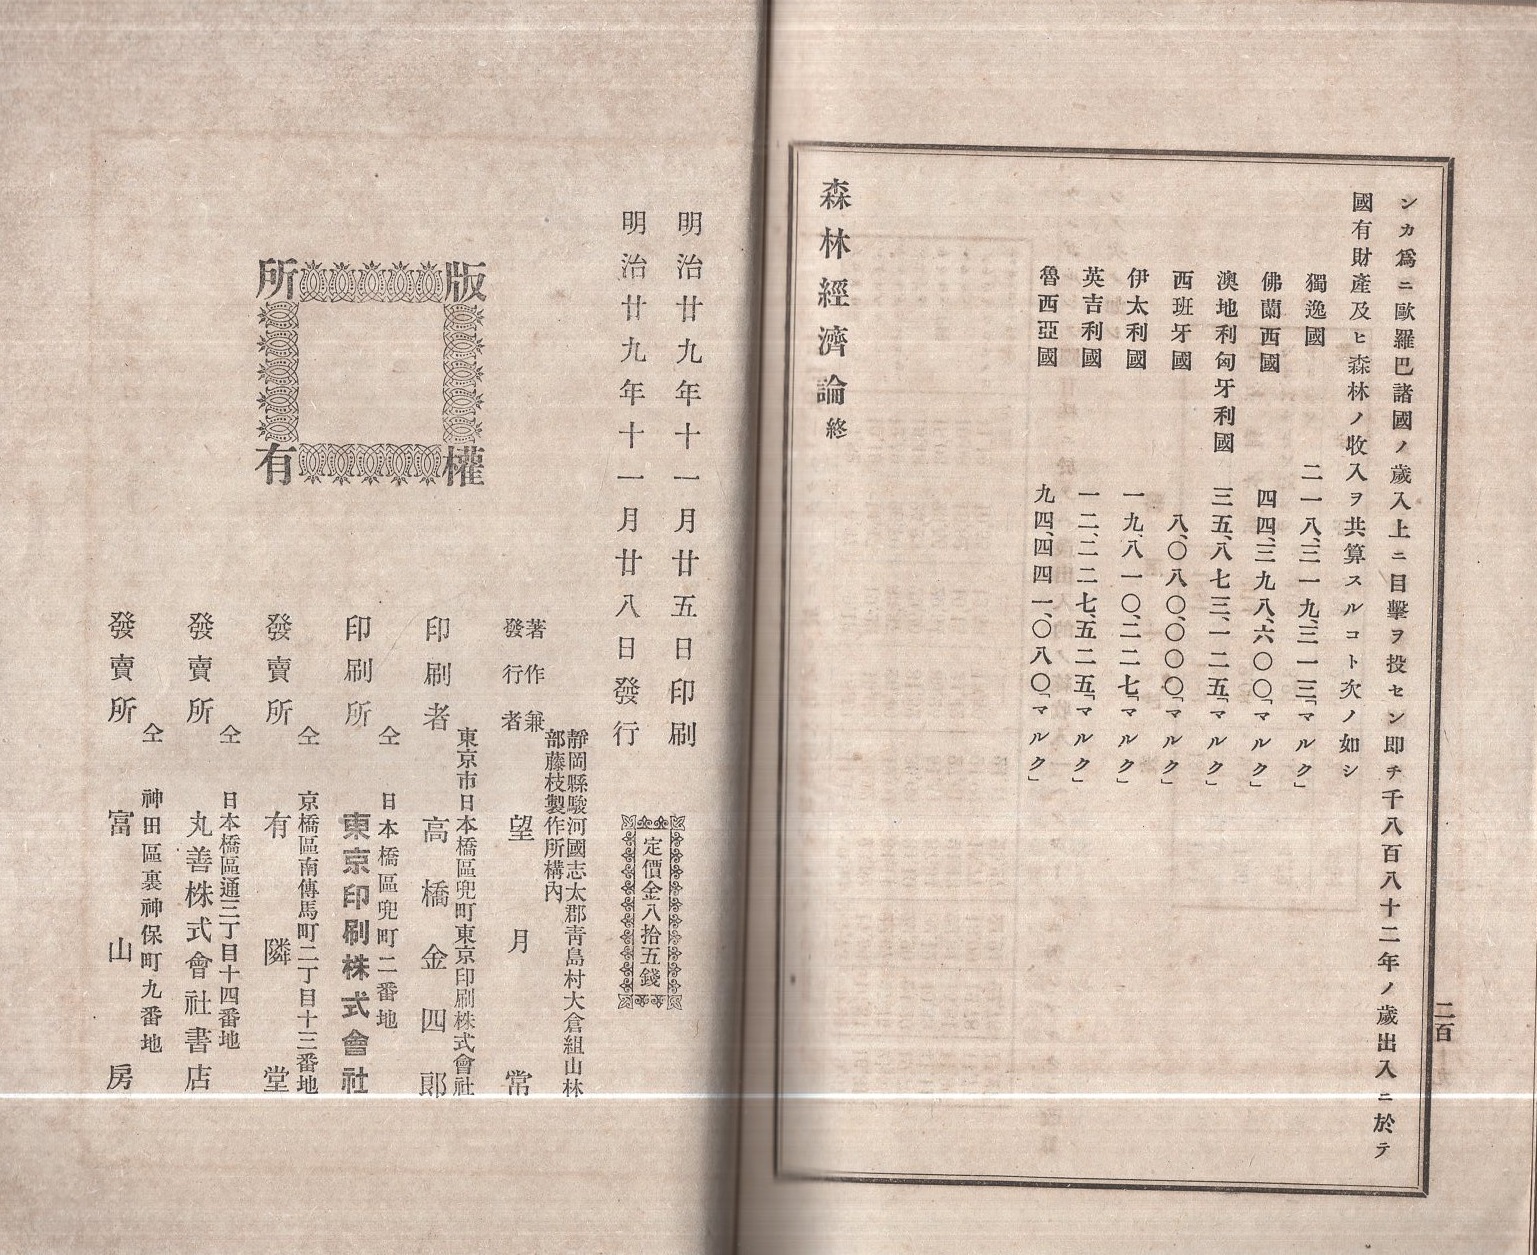 ンカ爲ニ歐羅巴諸國ノ歲入上ニ目擊ヲ投セン即チ千八百八十二年ノ歲出入ニ於テ
國有財產及ヒ森林ノ收入ヲ共算スルコト次ノ如シ
獨逸國 二一八、三一九、三一三「マルク」
佛蘭西國 四四、三九八、六〇〇「マルク」
澳地利匈牙利國 三五、八七三、一二五「マルク」
西班牙國 八、〇八〇、〇〇〇「マルク」
伊太利國 一九、八一〇、二二七「マルク」
英吉利國 一二、二二七、五二五「マルク」
魯西亞國 九四、四四一、〇八〇「マルク」
森林經濟論終
二百
明治廿九年十一月廿五日印刷
明治廿九年十一月廿八日發行
定價金八拾五錢
版權所有
靜岡縣駿河國志太郡靑島村大倉組山林
部藤枝製作所構內
著作兼
發行者 望月常
東京市日本橋區兜町東京印刷株式會社
印刷者 高橋金四郞
仝 日本橋區兜町二番地
印刷所 東京印刷株式會社
仝 京橋區南傳馬町二丁目十三番地
發賣所 有隣堂
仝 日本橋區通三丁目十四番地
發賣所 丸善株式會社書店
仝 神田區裏神保町九番地
發賣所 富山房